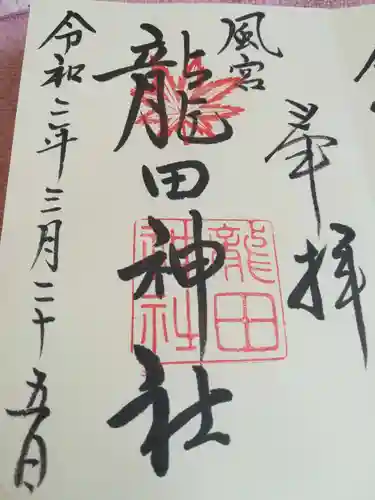 奉拝
風宮
龍田神社
龍田
神社
令和三年三月二十五日